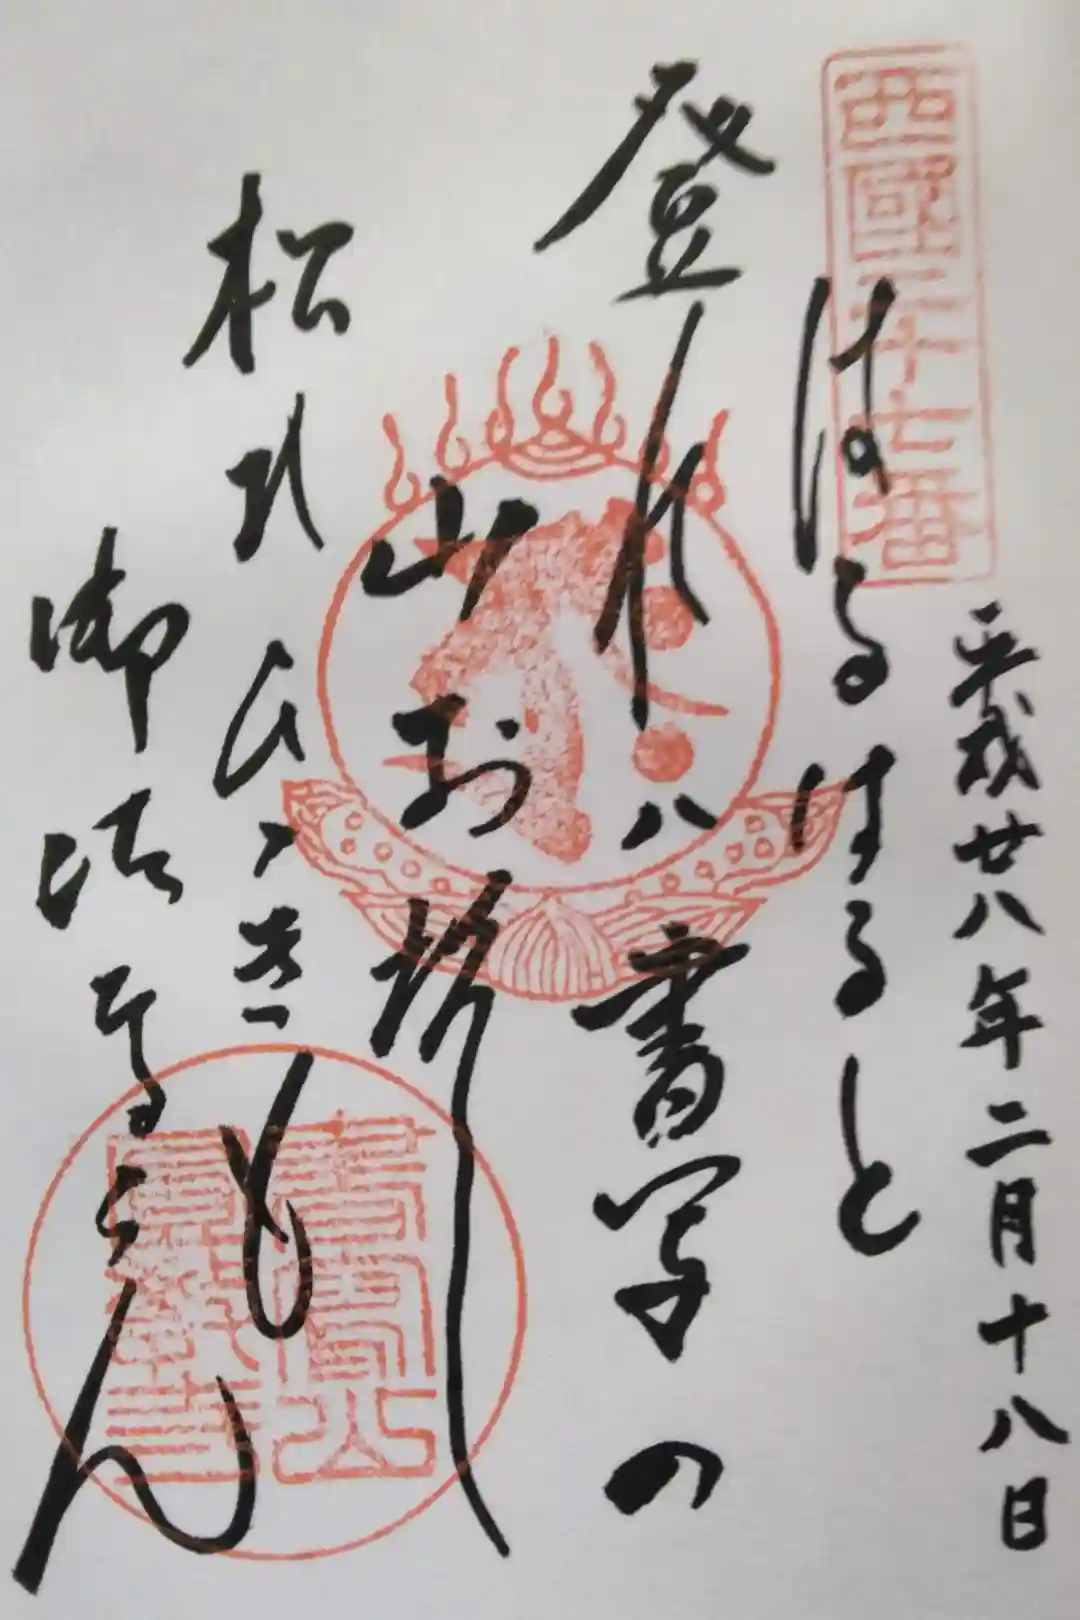 西國二十七番
平成廿八年二月十八日
はるはると
登れハ書写の
山おろし
松乃ひゝきも
御法なるらん
書寫山
圓教寺